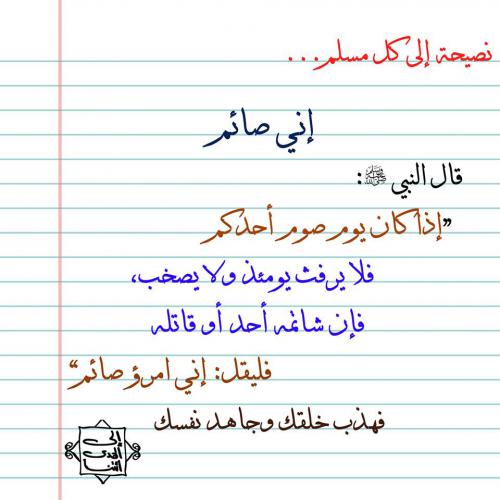 نصيحة إلى كل مسلم...
إني صائم
قال النبي ﷺ:
"إذا كان يوم صوم أحدكم
فلا يرفث يومئذ ولا يصخب،
فإن شاتمه أحد أو قاتله
فليقل: إني امرؤ صائم"
فهذب خلقك وجاهد نفسك
إلى
الهدى
ائتنا